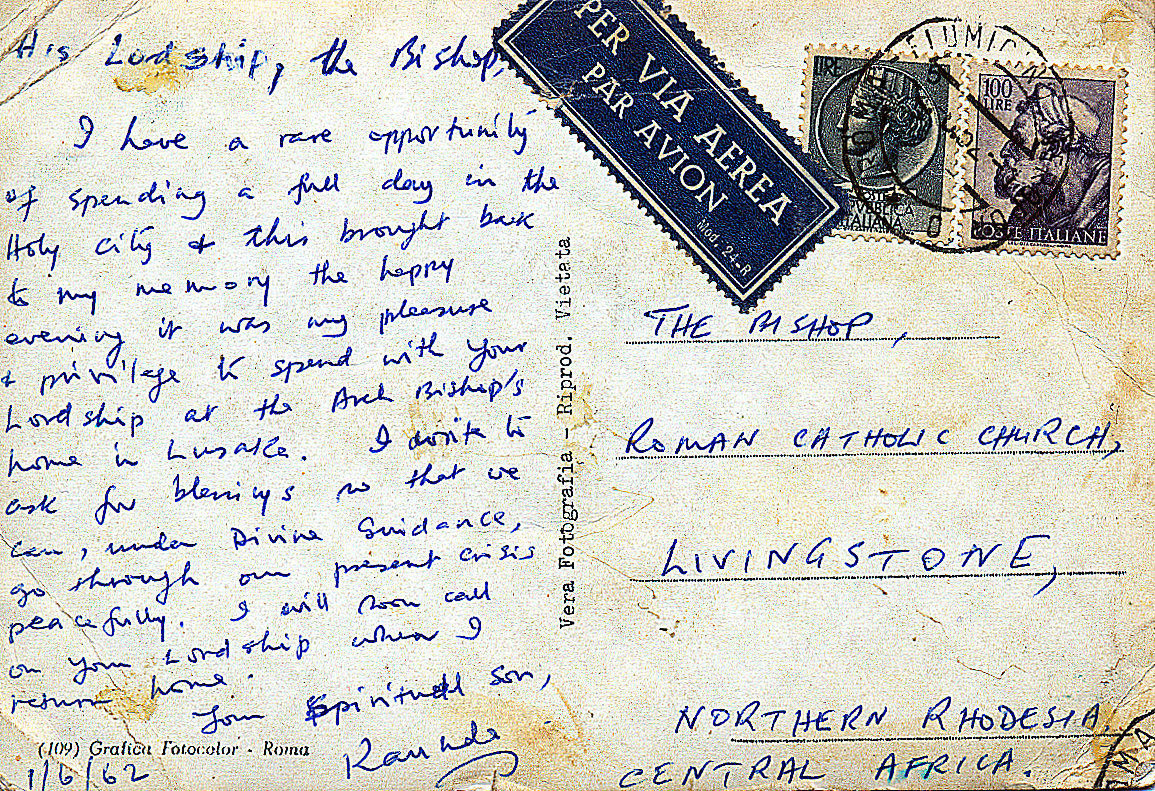 His Lordship, the Bishop,
I have a rare opportunity
of spending a full day in the
Holy City & this brought back
to my memory the happy
evening it was my pleasure
& privilege to spend with Your
Lordship at the Arch Bishop's
home in Lusaka. I write to
ask for blessings so that we
can, under Divine Guidance,
go through our present crisis
peacefully. I will soon call
on your Lordship when I
return home.
Your Spiritual son,
Kaunda
(109) Grafica Fotocolor - Roma
1/6/62
Vera Fotografia - Riprod. Vietata
PER VIA AEREA
PAR AVION
Mod. 24-R
LIRE
REPVBBLICA
ITALIANA
100
LIRE
POSTE ITALIANE
FIUMICINO
THE BISHOP,
ROMAN CATHOLIC CHURCH,
LIVINGSTONE,
NORTHERN RHODESIA
CENTRAL AFRICA.